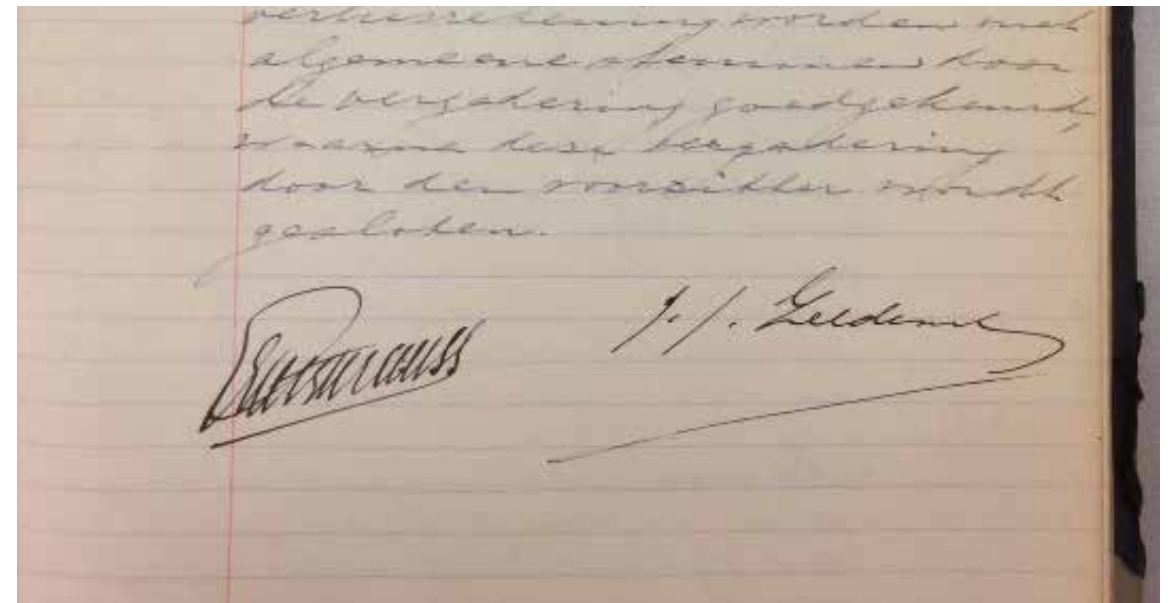 verliesrekening worden met
algemeene stemmen door
de vergadering goedgekeurd,
waarna deze vergadering
door den voorzitter wordt
gesloten.
J. J.